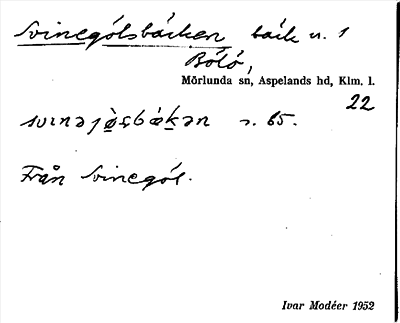 Svinegölsbäcken bäck n. 1
Bölö,
Mörlunda sn, Aspelands hd, Klm. l.
22
s. 65.
Från Svinegöl.
Ivar Modéer 1952